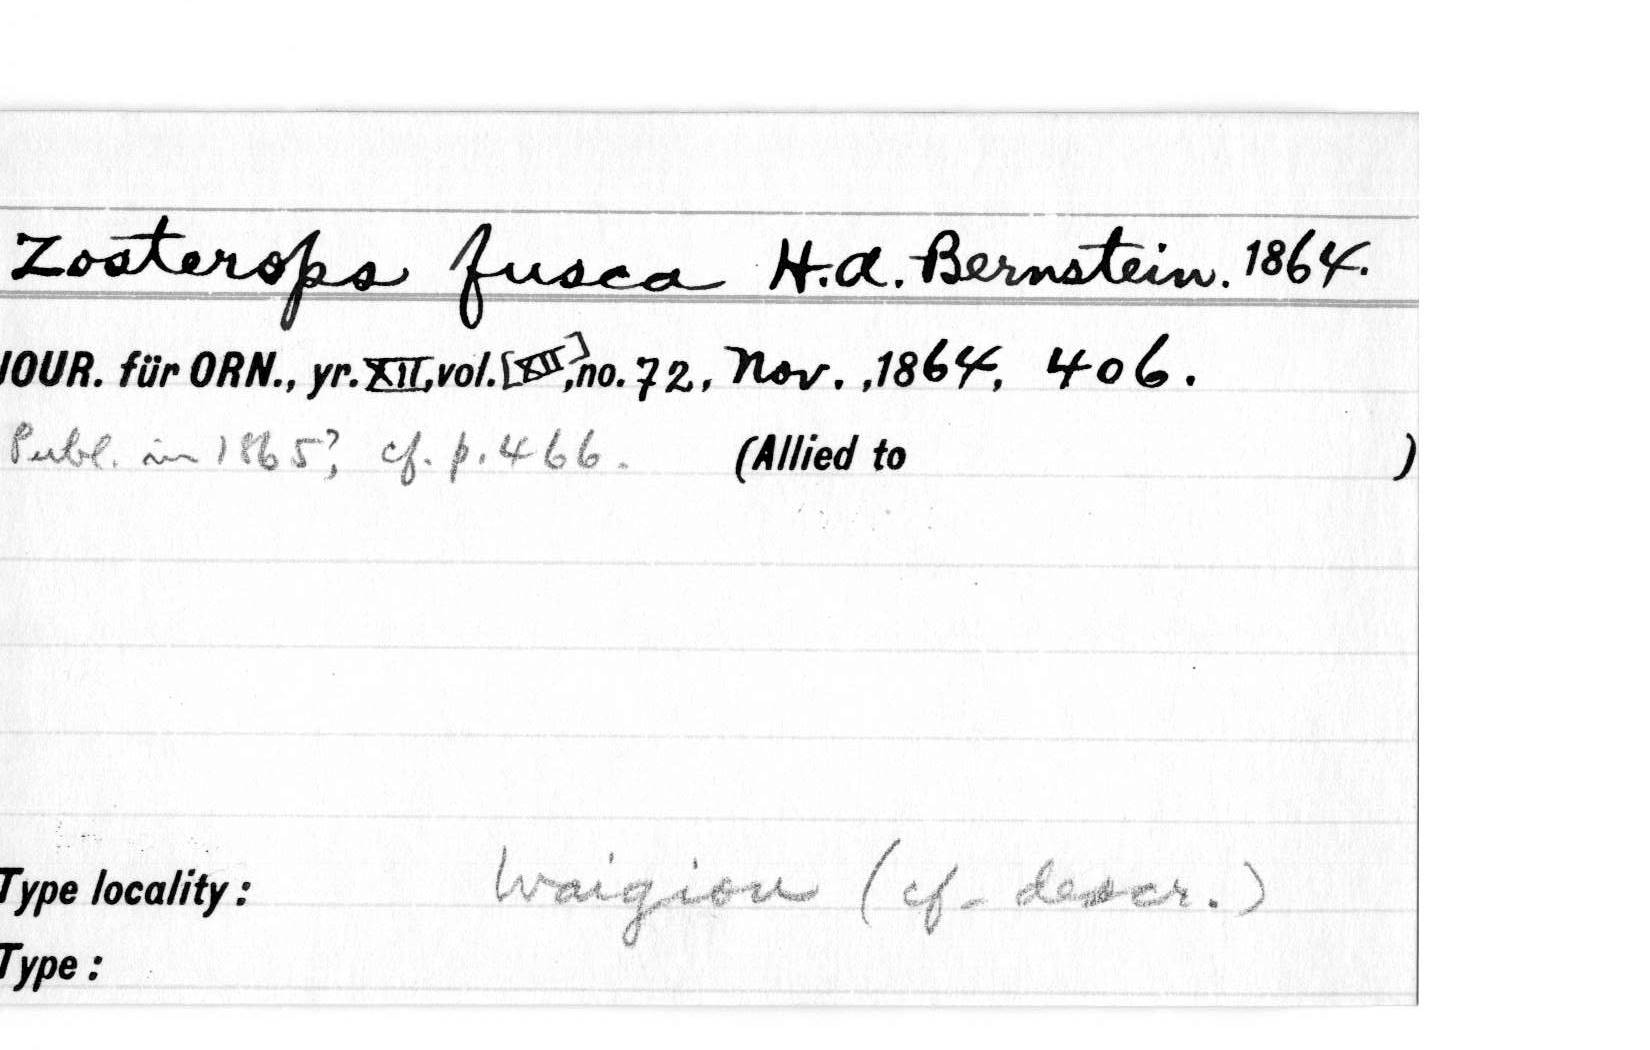 Zosterops fusca H.A. Bernstein. 1864.
JOUR. für ORN., yr. XII, vol. [XII], no. 72, Nov., 1864, 406.
Publ. in 1865?, cf. p. 466. (Allied to )
Type locality: Waigiou (cf. descr.)
Type: